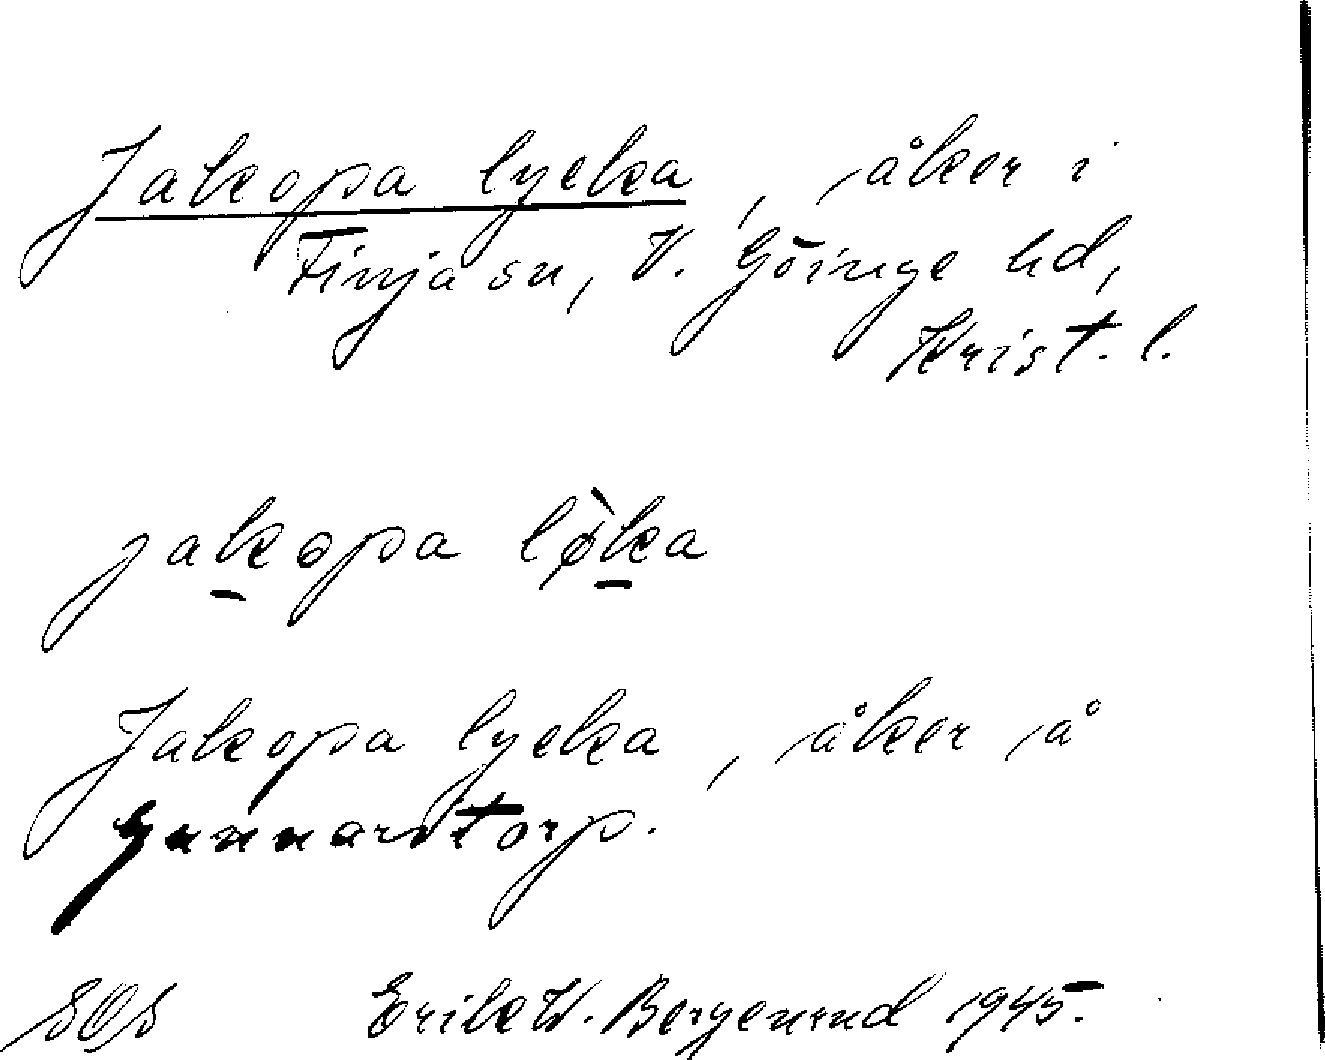 Jakopa lycka, åker i
Finja sn, V. Göinge hd,
Krist. l.
jakopa lø̀ka
Jakopa lycka, åker å
Gunnarstorp.
SOS Erik W. Bergenrud 1945.